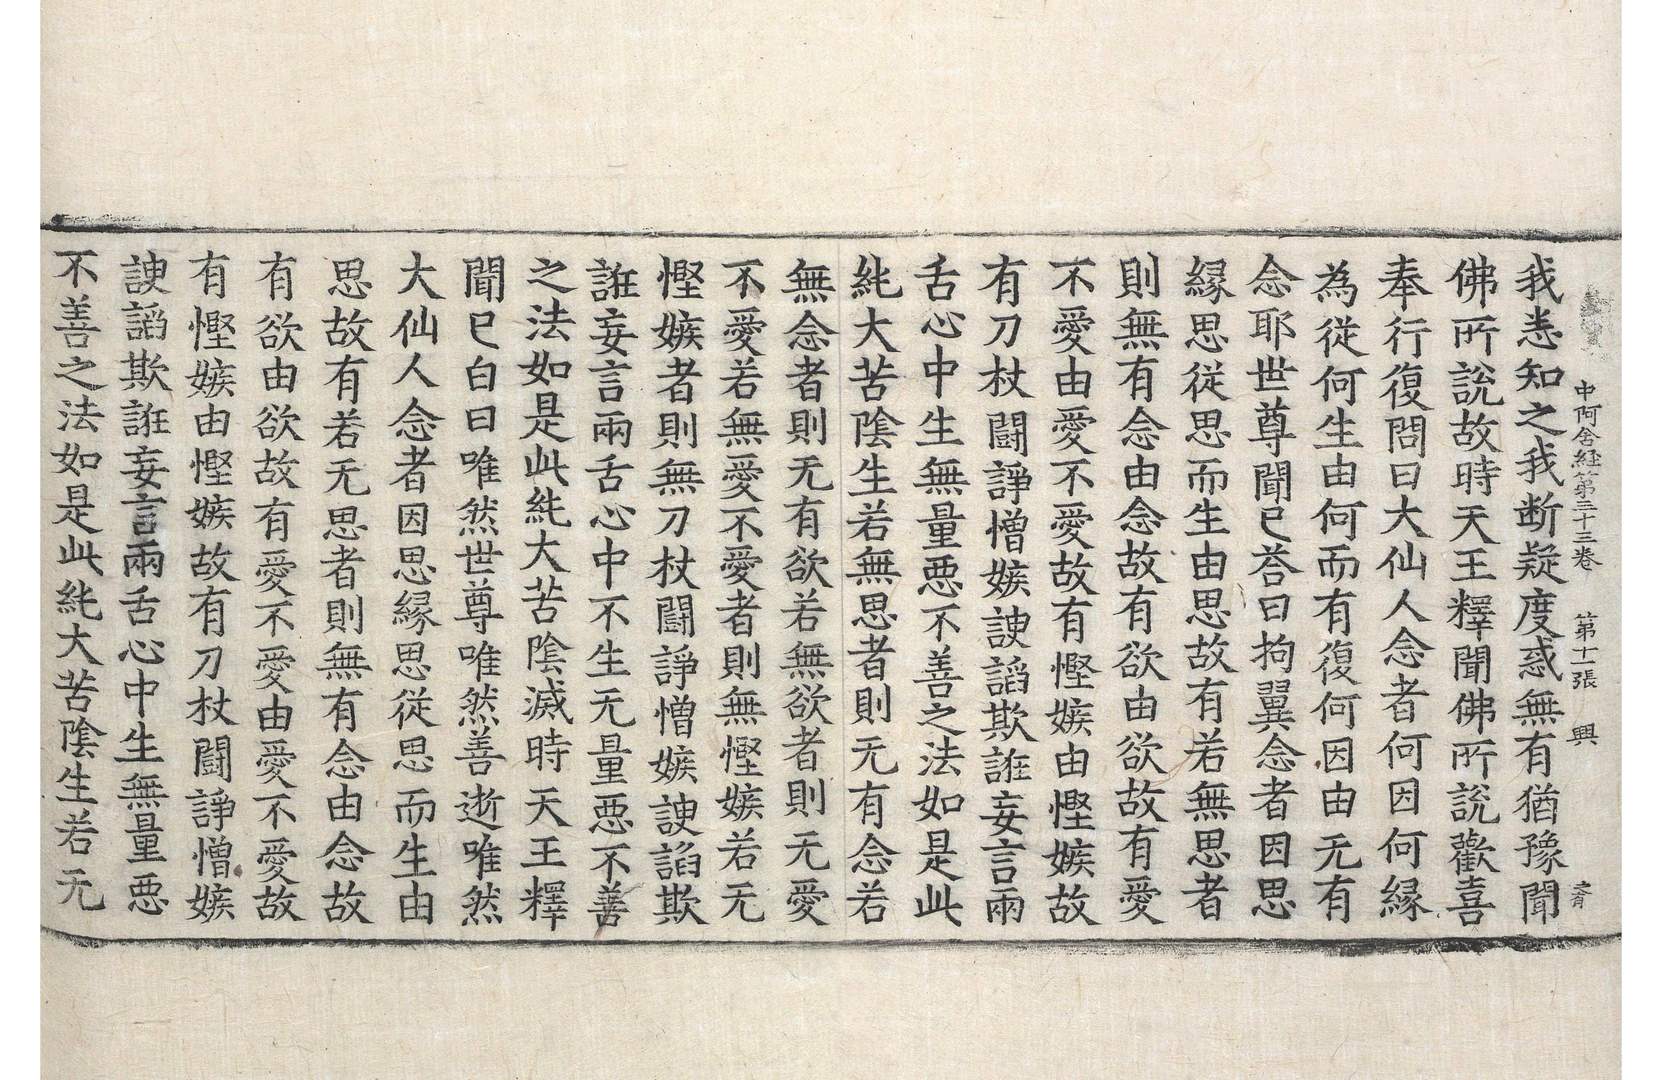 中阿含経第三十三巻　第十一張　興
我悉知之我断疑度惑無有猶豫聞
佛所說故時天王釋聞佛所說歡喜
奉行復問曰大仙人念者何因何縁
為従何生由何而有復何因由无有
念耶世尊聞已荅曰拘翼念者因思
縁思従思而生由思故有若無思者
則無有念由念故有欲由欲故有愛
不愛由愛不愛故有慳嫉由慳嫉故
有刀杖鬪諍憎嫉諛諂欺誑妄言兩
舌心中生無量悪不善之法如是此
純大苦陰生若無思者則无有念若
無念者則无有欲若無欲者則无愛
不愛若無愛不愛者則無慳嫉若无
慳嫉者則無刀杖鬪諍憎嫉諛諂欺
誑妄言兩舌心中不生无量悪不善
之法如是此純大苦陰滅時天王釋
聞已白曰唯然世尊唯然善逝唯然
大仙人念者因思縁思従思而生由
思故有若无思者則無有念由念故
有欲由欲故有愛不愛由愛不愛故
有慳嫉由慳嫉故有刀杖鬪諍憎嫉
諛諂欺誑妄言兩舌心中生無量悪
不善之法如是此純大苦陰生若无